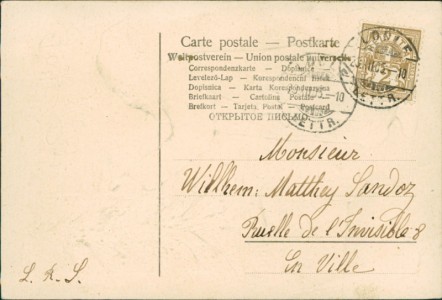 Carte postale — Postkarte
Weltpostverein — Union postale universelle
Correspondenzkarte — Dopisnice
Levelező-Lap — Korespondenční lístek
Dopisnica — Karta Korespondencyjna
Briefkaart — Cartolina Postale
Brefkort — Tarjeta Postal — Postcard
ОТКРЫТОЕ ПИСЬМО
LOCLE
LETTR.
2
Monsieur
Wilhem: Matthey Sandoz
Ruelle de l'Invisible 8
En Ville
L. R. S.